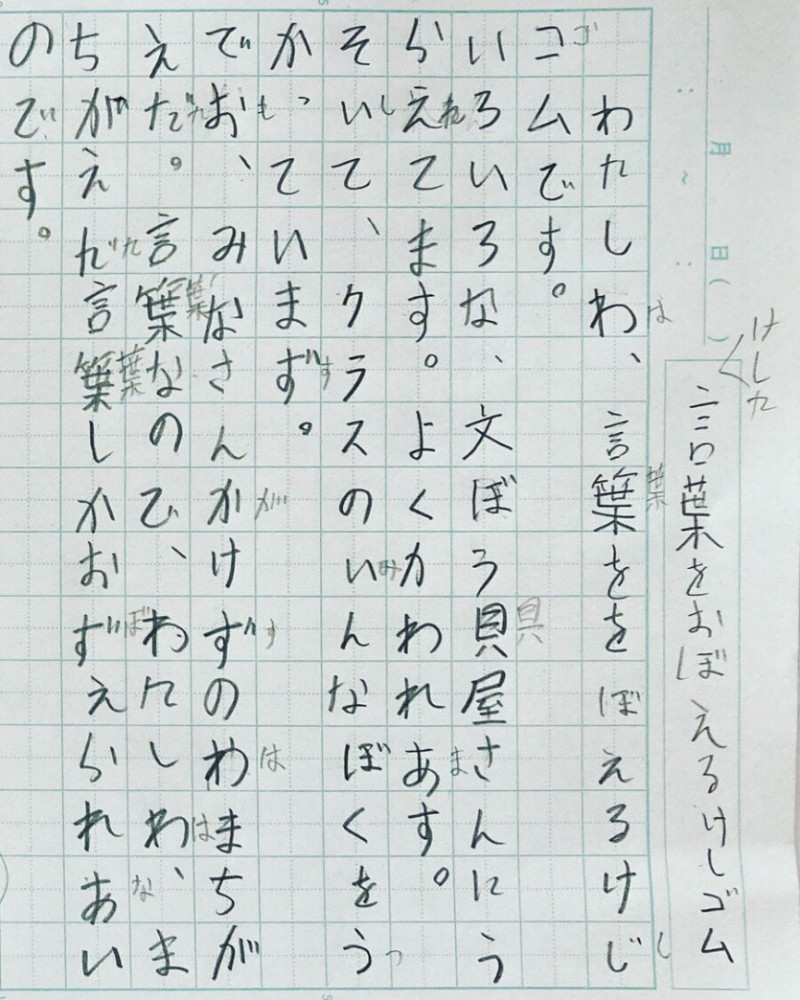 けした
月 日( )
言葉をおぼえるけしゴム
は 葉 し
わたしわ、言葉ををぼえるけじ
ゴ
コムです。
具
いろいろな、文ぼう貝屋さんにう
れ ま
らえてます。よくかわれあす。
し み っ
そいて、クラスのいんなぼくをう
す
かっていまず。
も が す は
でお、みなさんかけずのわまちが
た 葉 は
えだ。言葉なのひ、わたしわ、ま
た 葉 ぼ な
ちがえだ言葉しかおずえられあい
のです。